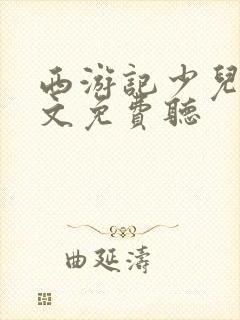 西游記少兒
文免費聽
曲延濤